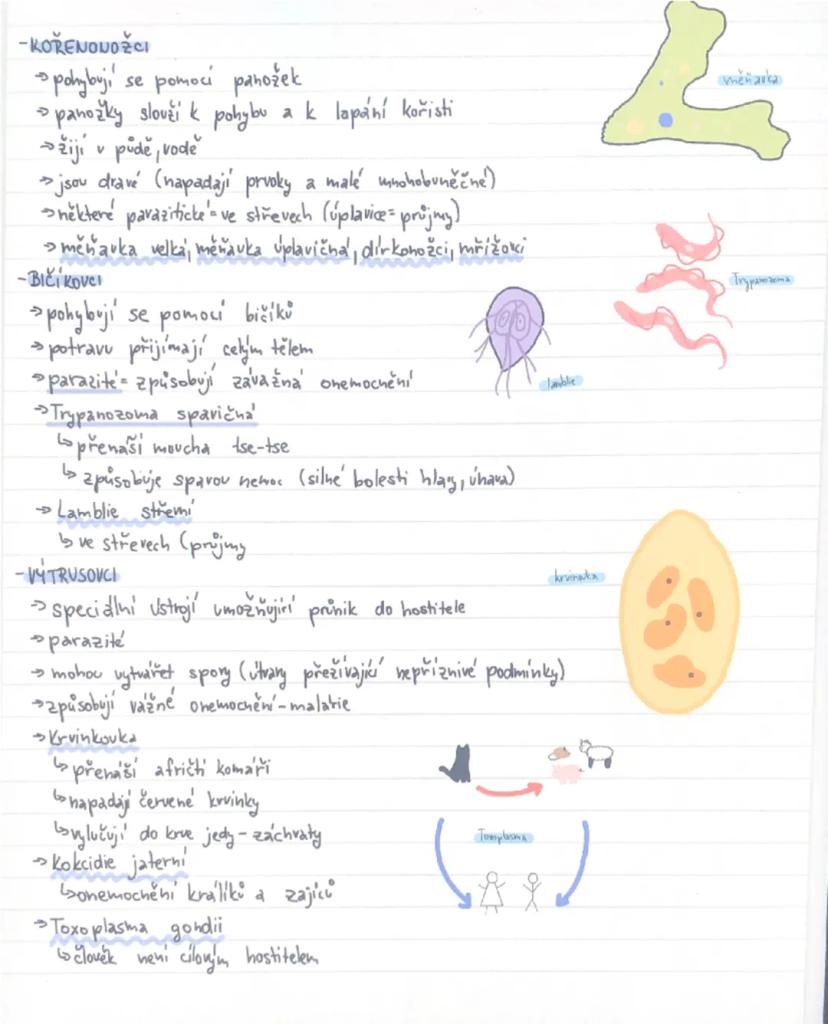 - KOŘENONOŽCI
→ pohybují se pomocí panožek
→ panožky slouží k pohybu a k lapání kořisti
→ žijí v půdě, vodě
→ jsou dravé (napadají prvoky a malé mnohobuněčné)
→ některé parazitické = ve střevech (úplavice = průjmy)
→ měňavka velká, měňavka úplavičná, dírkonožci, mřížovci
měňavka
- BIČÍKOVCI
→ pohybují se pomocí bičíků
→ potravu přijímají celým tělem
→ parazité = způsobují závažná onemocnění
→ Trypanozoma spavičná
↳ přenáší moucha tse-tse
↳ způsobuje spavou nemoc (silné bolesti hlavy, únava)
→ Lamblie střevní
↳ ve střevech (průjmy
Trypanozoma
lamblie
- VÝTRUSOVCI
→ speciální ústrojí umožňující průnik do hostitele
→ parazité
→ mohou vytvářet spory (útvary přežívající nepříznivé podmínky)
→ způsobují vážné onemocnění - malárie
→ Krvinkovka
↳ přenáší afričtí komáři
↳ napadají červené krvinky
↳ vylučují do krve jedy - záchvaty
→ Kokcidie jaterní
↳ onemocnění králíků a zajíců
→ Toxoplasma gondii
↳ člověk není cílovým hostitelem
krvinkovka
Toxoplasma